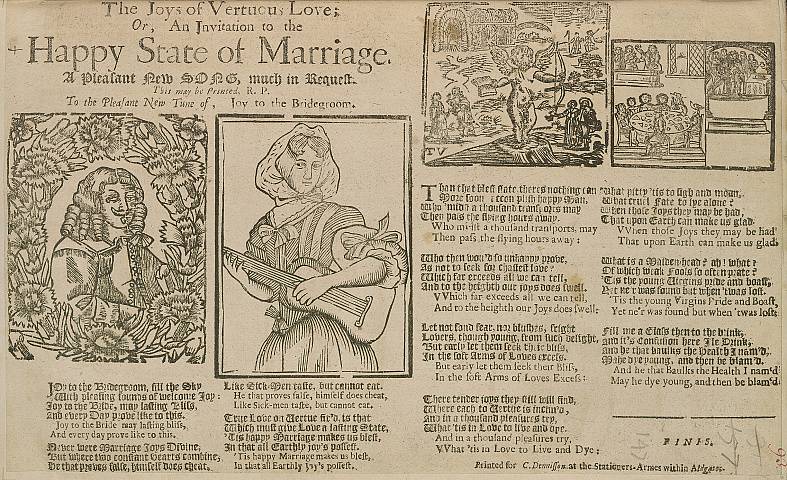 The Joys of Vertuous Love;
Or, An Invitation to the
Happy State of Marriage.
A Pleasant New SONG, much in Request.
This may be Printed, R. P.
To the Pleasant New Tune of, Joy to the Bridegroom.
TV
JOy to the Bridegroom, fill the Sky
With pleasing sounds of welcome Joy:
Joy to the Bride, may lasting Bliss,
And every Day prove like to this.
Joy to the Bride may lasting bliss,
And every day prove like this.
Never were Marriage Joys Divine,
But where two constant Hearts combine,
He that proves false, himself does cheat,
Like Sick-Men taste, but cannot eat.
He that proves false, himself does cheat,
Like Sick-men taste, but cannot eat.
True Love on Vertue fix'd, is that
Which must give Love a lasting State,
'Tis happy Marriage makes us blest,
In that all Earthly joy's possest.
'Tis happy Marriage makes us blest,
In that all Earthly Joy's possest.
Than that blest state theres nothing can
More soon plish happy Man,
Who midst a thousand transports may
Then pass the flying hours away.
Who midst a thousand transports, may
Then pass the flying hours away:
Who then wou'd so unhappy prove,
As not to seek for chastest love?
Which far exceeds all we can tell,
And to the heighth our joys does swell.
VVhich far exceeds all we can tell,
And to the heighth our Joys does swell:
Let not fond fear, nor blushes, fright
Lovers, though young, from such delight,
But early let them seek their bliss,
In the soft Arms of Loves Excess.
But early let them seek their Bliss,
In the soft Arms of Loves Excess:
There tender joys they still will find,
Where each to Vertue is inclin'd,
And in a thousand pleasures try,
What 'tis in Love to live and dye.
And in a thousand pleasures try,
VVhat 'tis in Love to Live and Dye:
What pitty 'tis to sigh and moan,
What cruel Fate to lye alone?
When those Joys they may be had,
That upon Earth can make us glad.
VVhen those Joys they may be had
That upon Earth can make us glad.
What is a Maiden-head? ah! what?
Of which weak Fools so often prate?
'Tis the young Virgins pride and boast,
Yet ne'r was found but when 'twas lost.
Tis the young Virgins Pride and Boast,
Yet ne'r was found but when 'twas lost:
Fill me a Glass then to the brink,
And it's Confusion here Ile Drink,
And he that baulks the Health I nam'd,
May he dye young, and then be blam'd.
And he that Baulks the Health I nam'd
May he dye young, and then be blam'd.
FINIS.
Printed for C. Dennisson, at the Stationers-Arms within Aldgate.